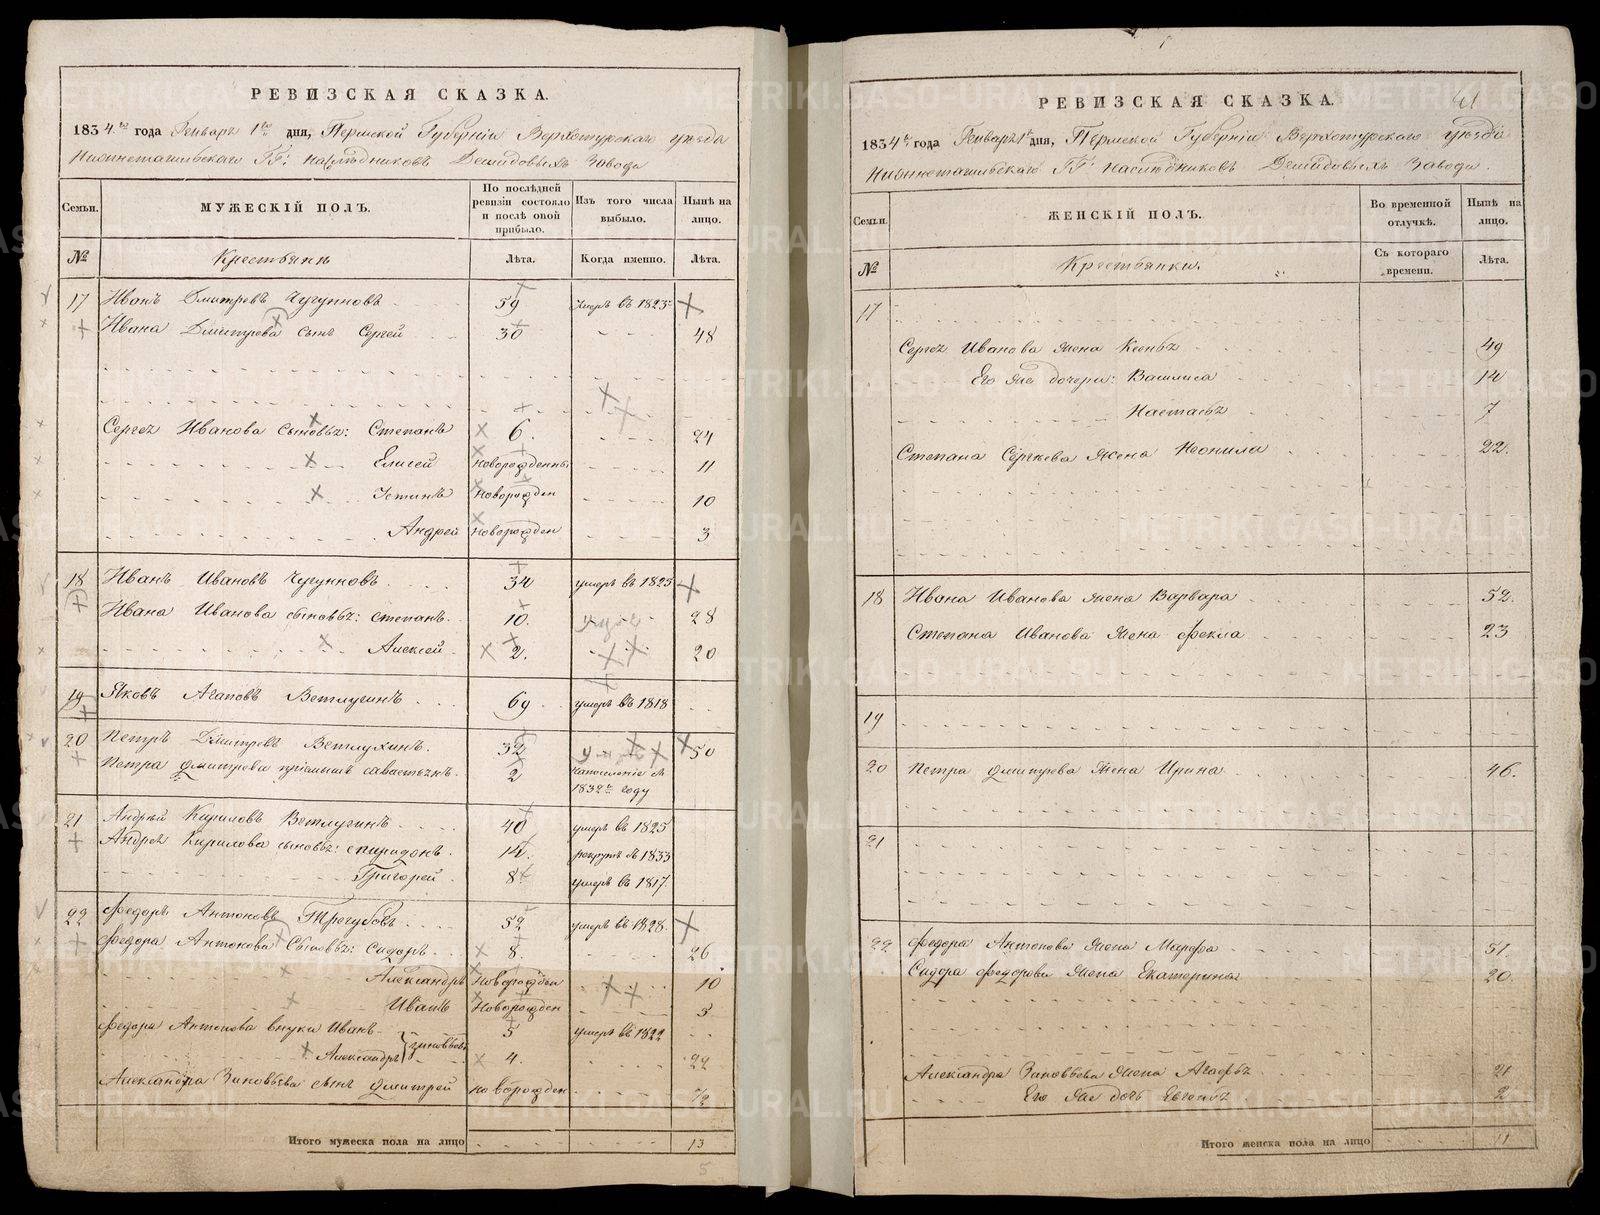 РЕВИЗСКАЯ СКАЗКА.
1834.го года Генваря 1го дня, Пермской Губерніи Верхотурскаго уѣзда
Нижнетагильскаго ГГ: наслѣдниковъ Демидовыхъ Завода
Семьи. МУЖЕСКІЙ ПОЛЪ. По послѣдней ревизіи состояло и послѣ оной прибыло. Изъ того числа выбыло. Нынѣ на лицо.
№ Крестьяне Лѣта. Когда именно. Лѣта.
17 Иванъ Дмитревъ Чугуновъ 59 умеръ въ 1823
Ивана Дмитрева сынъ Сергей 30 48
Сергея Иванова сыновья: Степанъ 6. 24
Елисей новорожденны 11
Устинъ новорожден 10
Андрей новорожден 3
18 Иванъ Ивановъ Чугунновъ 34 умеръ въ 1825
Ивана Иванова сыновья: степанъ 10. 28
Алексей 2. 20
19 Яковъ Агаповъ Ветлугинъ 69 умеръ въ 1818
20 Петръ Дмитревъ Ветлугинъ. 32 50
Петра дмитрева приемышъ савастьянъ. 2 1832го году
21 Андрей Кириловъ Ветлугинъ 40 умеръ въ 1825
Андрея Кирилова сыновья: спиридонъ. 14. рекрутъ въ 1833
Григорей 8 умеръ въ 1817.
22 федоръ Антоновъ Трегубовъ 52 умеръ въ 1828.
федора Антонова Сыновья: Сидоръ 8. 26
Александръ Новорожден 10
Иванъ Новорожден 3
федора Антонова внуки Иванъ 5 умеръ въ 1822
Александръ зиновьевы 4. 22
Александра Зиновьева сынъ дмитрей новорожден 1/2
Итого мужеска пола на лицо 13
5
61
РЕВИЗСКАЯ СКАЗКА.
1834го года Генваря 1го дня, Пермской Губерніи Верхотурскаго уѣзда
Нижнетагильскаго ГГ: наслѣдниковъ Демидовыхъ Завода.
Семьи. ЖЕНСКІЙ ПОЛЪ. Во временной отлучкѣ. Нынѣ на лицо.
№ Крестьянки. Съ котораго времени. Лѣта.
17
Сергея Иванова жена Ксенья 49
Его же дочери: Василиса 14
Настасья 7
Степана Сергеева жена Неонила 22.
18 Ивана Иванова жена Варвара 52.
Степана Иванова жена фекла 23
19
20 Петра дмитрева жена Ирина 46.
21
22 федора Антонова жена Марфа 51.
Сидора федорова жена Екатерина 20
Александра Зиновьева жена Агафья 21
Его же дочь Евгенья 2
Итого женска пола на лицо 11
METRIKI.GASO-URAL.RU